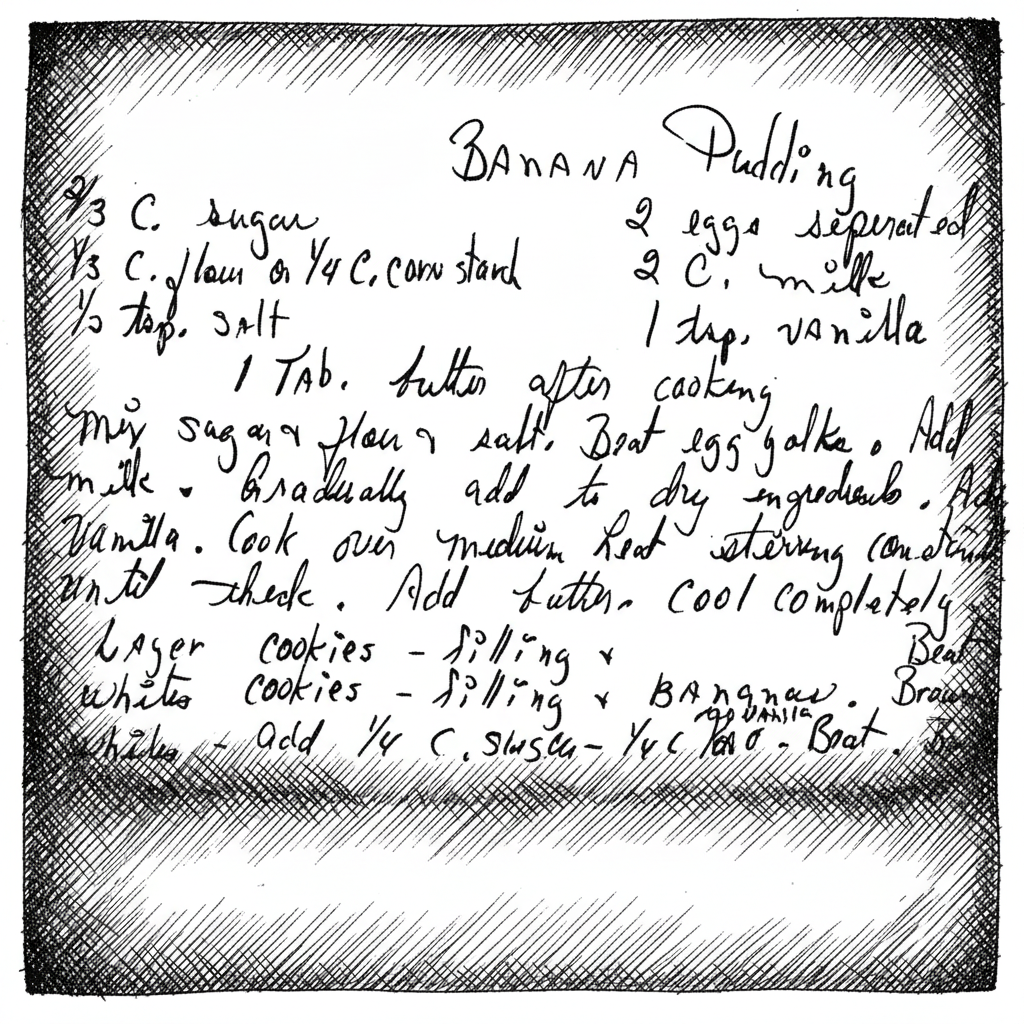 BANANA Pudding
2/3 C. sugar 2 eggs seperated
1/3 C. flour or 1/4 C. corn starch 2 C. milk
tsp. SAlt 1 tsp. VANilla
1 TAb. butter after cooking
Mix sugar & flour & salt. Beat egg yolks. Add
milk. Gradually add to dry ingredients. Add
Vanilla. Cook over medium heat stirring
until thick. Add butter. Cool completely
LAyer cookies - filling & Beat
whites cookies - filling & BAnanas.
whites - add 1/4 C. - 1/4 VANilla - Beat.